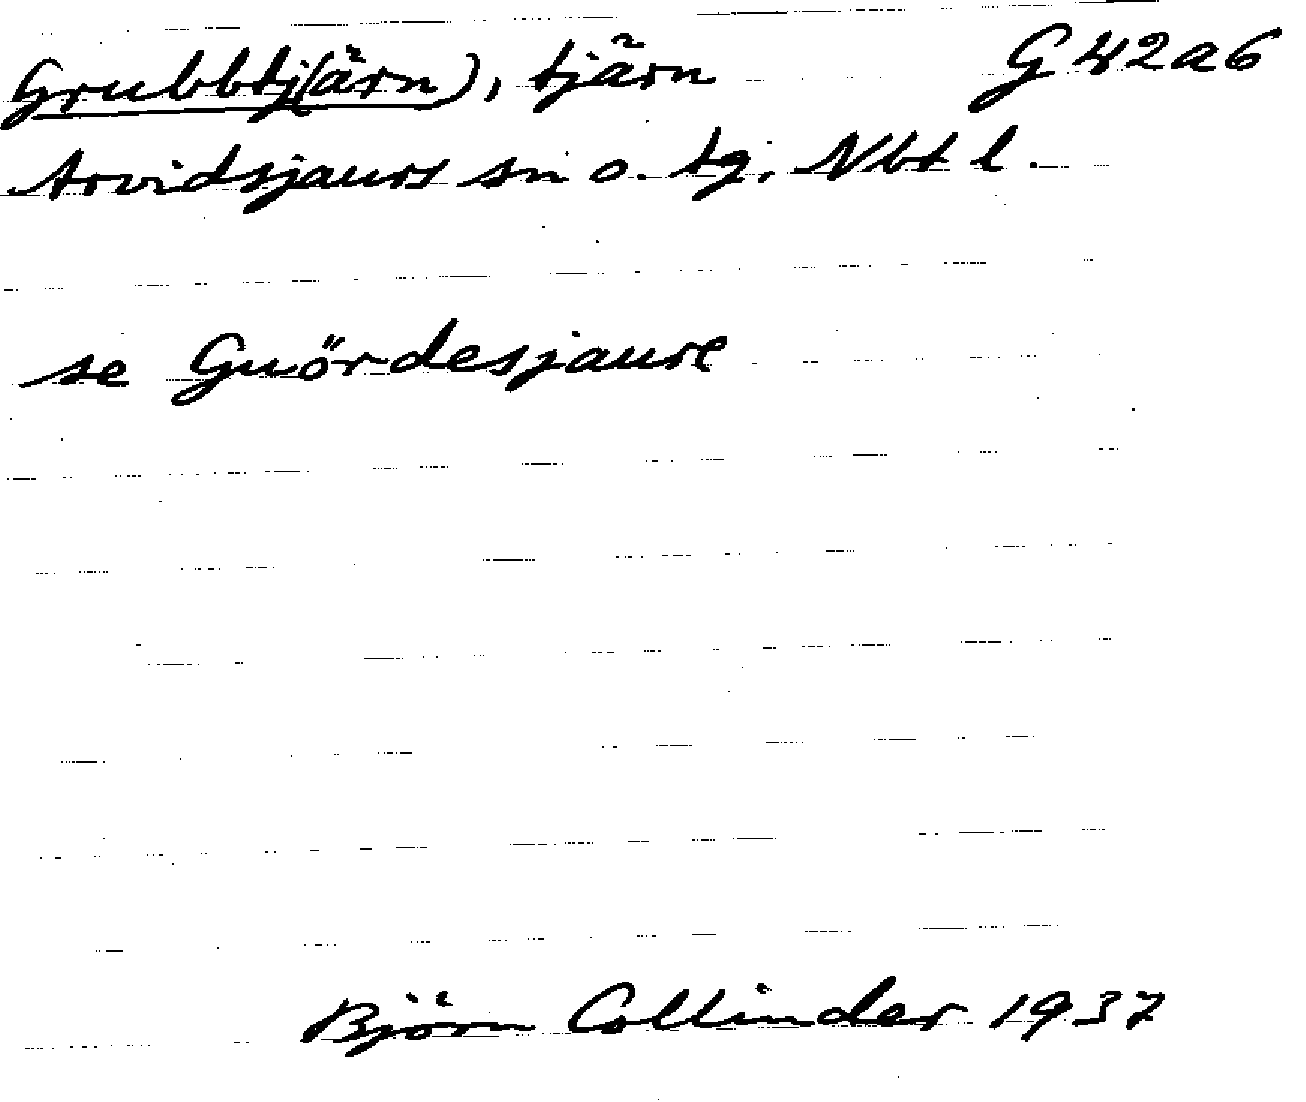 Grubbtj(ärn), tjärn G 42a6
Arvidsjaurs sn o. tg. Nbt l.
se Guördesjaure
Björn Collinder 1937